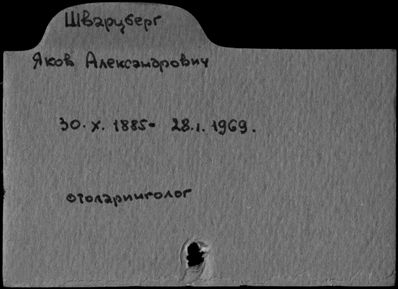 Шварцберг
Яков Александрович
30.X.1885- 28.I.1969.
отоларинголог